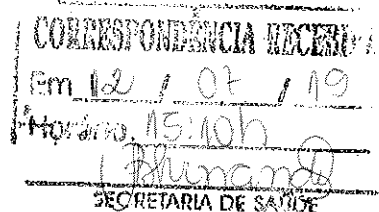 CORRESPONDÊNCIA RECEBI
Em 12 / 07 / 19
Horário. 15:10h
SECRETARIA DE SAÚDE